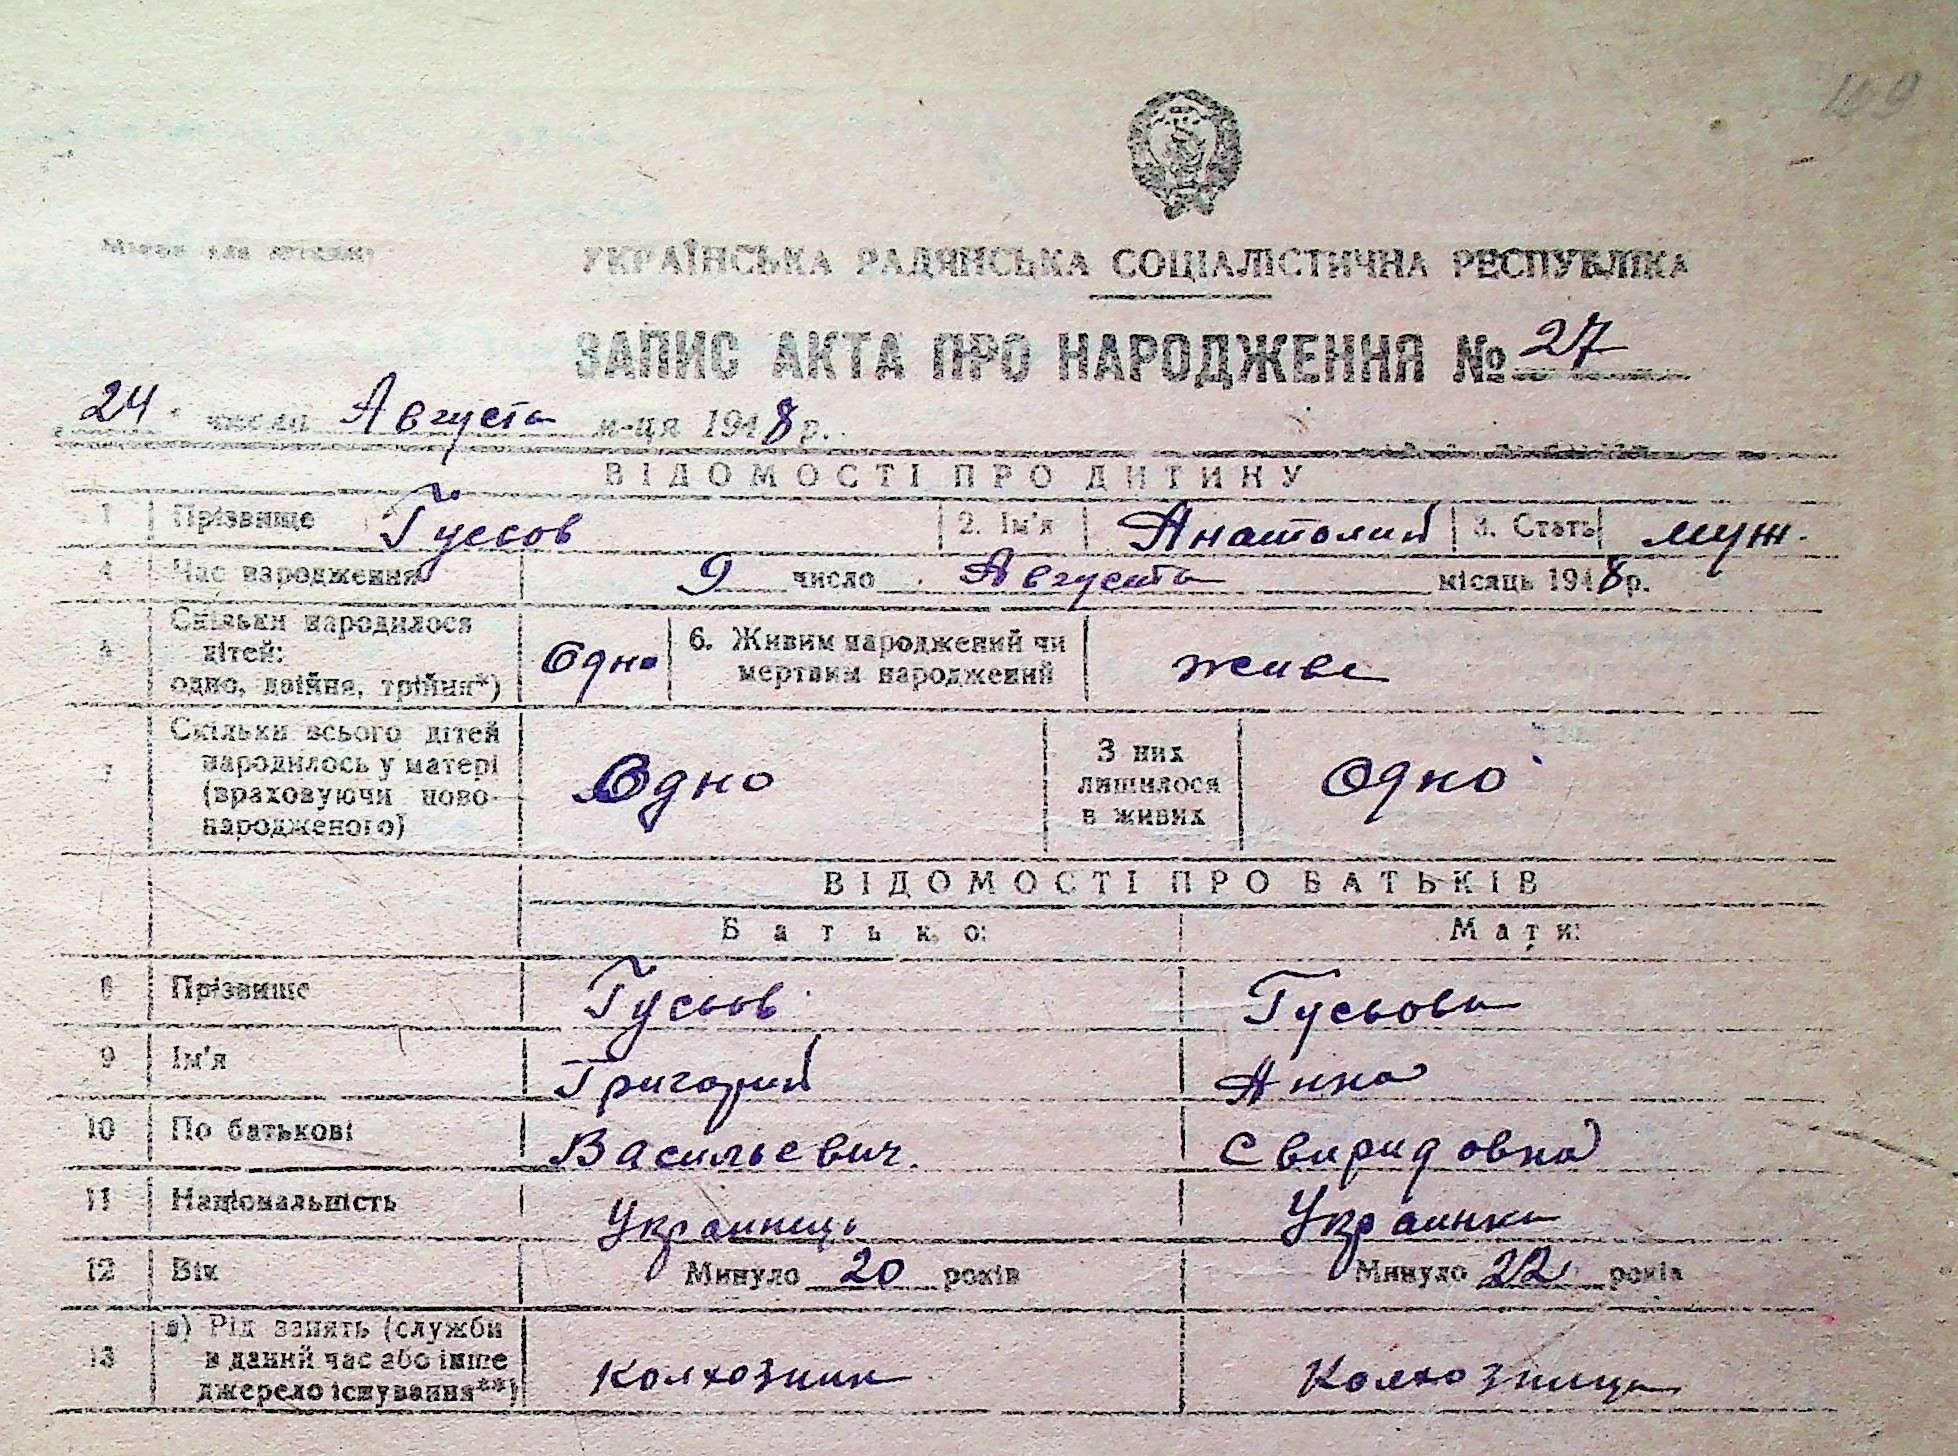 УКРАЇНСЬКА РАДЯНСЬКА СОЦІАЛІСТИЧНА РЕСПУБЛІКА
ЗАПИС АКТА ПРО НАРОДЖЕННЯ № 27
24 числа Августа м-ця 1948 р.
ВІДОМОСТІ ПРО ДИТИНУ
1 Прізвище Гусьов 2. Ім'я Анатолий 3. Стать муж.
4 Час народження 9 число Августа місяць 1948 р.
5 Скільки народилося дітей: одно, двійня, трійня*) Одно 6. Живим народжений чи мертвим народжений живе
7 Скільки всього дітей народилось у матері (враховуючи новонародженого) Одно З них лишилося в живих Одно
ВІДОМОСТІ ПРО БАТЬКІВ
Батько: Мати:
8 Прізвище Гусьов Гусьова
9 Ім'я Григорий Анна
10 По батькові Васильевич. Свиридовна
11 Національність Украинец Украинка
12 Вік Минуло 20 років Минуло 22 років
13 а) Рід занять (служби в даний час або інше джерело існування**) Колхозник Колхозница